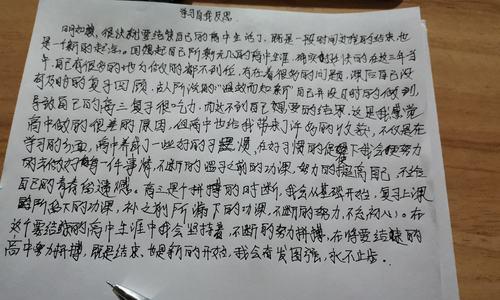 学习自我反思
时如梭，很快就要结束自己的高中生活了，既是一段时间过程的结束，也
是一个新的起点。回想起自己所剩无几的高中生涯，确实越过快的在这三年当
中，自己有很多的地方做的都不到位，存在着很多的问题，课后自己没
有及时的复习回顾，古人所说的“温故而知新”自己并没有时的做到，
导致自己的高三复习很吃力，而达不到自己想要的结果，这是我感觉
高中做的很差的原因，但高中也给我带来了许多的收获，不仅是在
学习的方面，高中养成了一些好的习惯，在好习惯的促使下我会更努力
的去做好每一件事情，不断的温习之前的功课，努力的提高自己，不给
自己的青春留遗憾。高三是个拼搏的时期，我会从基础开始，复习上课
所落下的功课，补之前所漏下的功课，不断的努力，不忘初心。在
这个要结结的高中生涯中我会坚持着，不断的努力拼搏，在将要结束的
高中努力拼搏，既是结束，也是新的开始，我会奋发图强，永不止步。